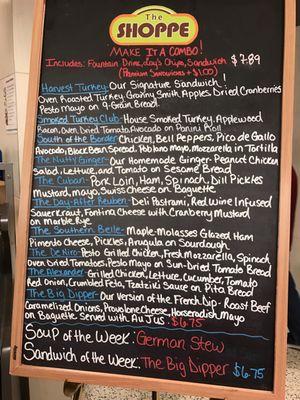 The
SHOPPE
MAKE IT A COMBO!
Includes: Fountain Drink, Lay's Chips, Sandwich $7.89
(Premium Sandwiches +$1.00)
Harvest Turkey-Our Signature Sandwich!
Oven Roasted Turkey, Granny Smith Apples, Dried Cranberries
Pesto Mayo on 9-Grain Bread.
Smoked Turkey Club-House Smoked Turkey, Applewood
Bacon, Oven Dried Tomato, Avocado on Panini Roll
South of the Border-Chicken, Bell Peppers, Pico de Gallo
Avocado, Black Bean Spread, Poblano Mayo, Mozzarella in Tortilla
The Nutty Ginger-Our Homemade Ginger-Peanut Chicken
Salad, Lettuce, and Tomato on Sesame Bread
The Cuban-Pork Loin, Ham, Spinach, Dill Pickles
Mustard, mayo, Swiss Cheese on Baguette
The Day-After Reuben-Deli Pastrami, Red Wine Infused
Sauerkraut, Fontina Cheese with Cranberry Mustard
on Marble Rye
The Southern Belle-Maple-Molasses Glazed Ham
Pimento Cheese, Pickles, Arugula on Sourdough
The De Niro-Pesto Grilled Chicken, Fresh Mozzarella, Spinach
Oven Dried Tomatoes, Pesto Mayo on Sun-Dried Tomato Bread
The Alexander-Grilled Chicken, Lettuce, Cucumber, Tomato
Red Onion, Crumbled Feta, Tzatziki Sauce on Pita Bread
The Big Dipper-Our Version of the French Dip-Roast Beef
Caramelized Onions, Provolone Cheese, Horseradish Mayo
on Baguette Served with Au Jus $6.75
Soup of the Week: German Stew
Sandwich of the Week: The Big Dipper $6.75